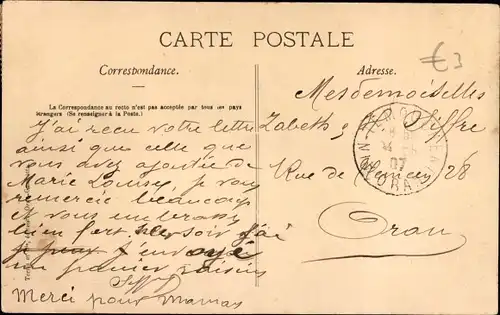 CARTE POSTALE
Correspondance.
Adresse.
La Correspondance au recto n'est pas acceptée par tous les pays
étrangers (Se renseigner à la Poste.)
J'ai reçu votre lettre
ainsi que celle que
vous avez ajoutée de
Marie Louise, je vous
remercie beaucoup
et vous embrasse
bien fort. Hier soir j'ai
je peux envoyé
un panier raisins
Merci pour Maman
Mesdemoiselles
Zabeth & Siffre
Rue de 28
Oran
ORAN
07
€3